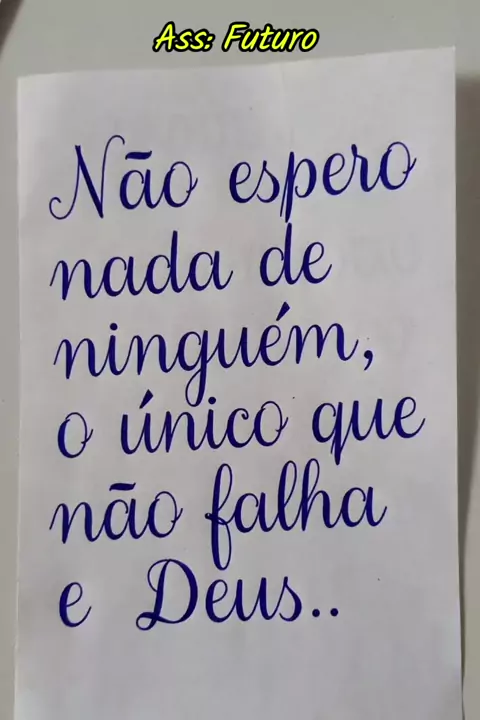 Ass: Futuro
Não espero
nada de
ninguém,
o único que
não falha
e Deus..